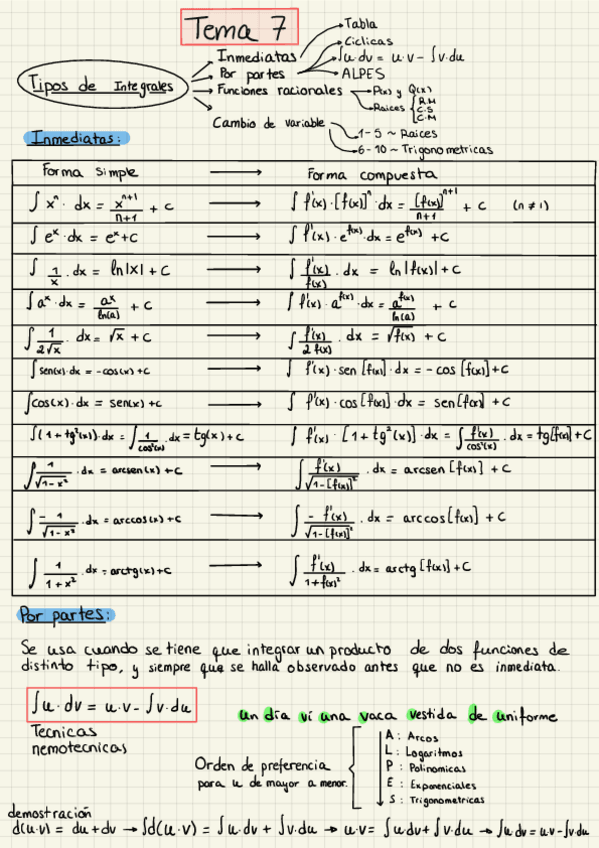 Tema 7
Tipos de Integrales
Inmediatas
Por partes
Tabla
Ciclicas
∫u·dv = u·v - ∫v·du
ALPES
Funciones racionales
P(x) y Q(x)
Raices { R.M
C.S
C.M
Cambio de variable
1-5 ~ Raices
6-10 ~ Trigonometricas
Inmediatas:
Forma simple → Forma compuesta
∫ xⁿ · dx = xⁿ⁺¹/n+1 + C → ∫ f'(x)·[f(x)]ⁿ·dx = [f(x)]ⁿ⁺¹/n+1 + C (n ≠ 1)
∫ eˣ·dx = eˣ+C → ∫ f'(x)·e^f(x)·dx = e^f(x) +C
∫ 1/x · dx = ln|x| + C → ∫ f'(x)/f(x) · dx = ln|f(x)|+C
∫ aˣ·dx = aˣ/ln(a) + C → ∫ f'(x)·a^f(x)·dx = a^f(x)/ln(a) + C
∫ 1/2√x · dx = √x + C → ∫ f'(x)/2 f(x) · dx = √f(x) + C
∫ sen(x)·dx = -cos(x)+C → ∫ f'(x)·sen [f(x)]·dx = -cos [f(x)]+C
∫cos(x)·dx = sen(x)+C → ∫ f'(x)·cos[f(x)]·dx = sen[f(x)] + C
∫(1+tg²(x))·dx = ∫ 1/cos²(x) ·dx = tg(x)+C ∫ f'(x)·[1+tg²(x)]·dx = ∫ f'(x)/cos²(x) · dx = tg[f(x)]+C
∫ 1/√1-x² ·dx = arcsen(x)+C → ∫ f'(x)/√1-[f(x)]² · dx = arcsen [f(x)] + C
∫ - 1/√1-x² ·dx = arccos(x)+C → ∫ - f'(x)/√1-[f(x)]² · dx = arccos[f(x)] + C
∫ 1/1+x² ·dx = arctg(x)+C → ∫ f'(x)/1+f(x)² · dx = arctg [f(x)]+C
Por partes:
Se usa cuando se tiene que integrar un producto de dos funciones de
distinto tipo, y siempre que se halla observado antes que no es inmediata.
∫u·dv = u·v - ∫v·du
un día ví una vaca vestida de uniforme
Tecnicas
nemotecnicas
Orden de preferencia
para u de mayor a menor.
A : Arcos
L : Logaritmos
P : Polinomicas
E : Exponenciales
S : Trigonometricas
demostración
d(u·v) = du+dv → ∫d(u·v) = ∫u·dv + ∫v·du → u·v = ∫u·dv + ∫v·du → ∫u·dv = u·v-∫v·du